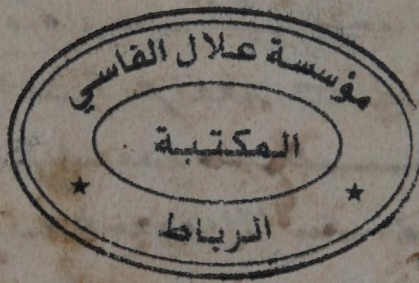 مؤسسة علال الفاسي
المكتبة
الرباط